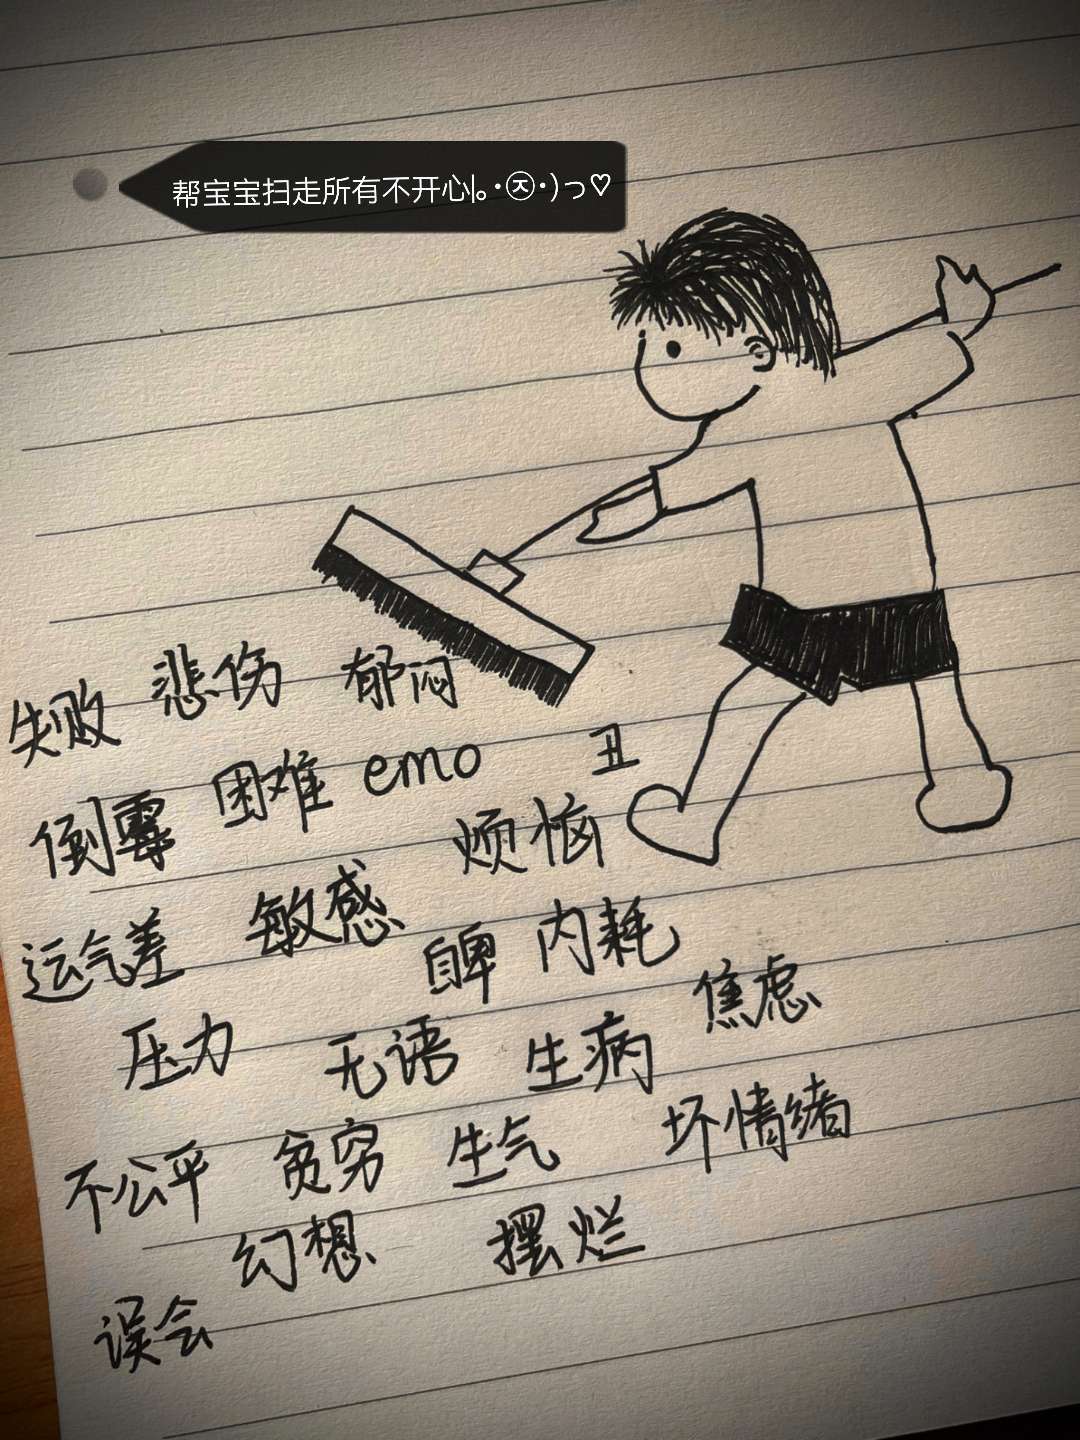 帮宝宝扫走所有不开心|｡･㉨･)っ♡
失败 悲伤 郁闷
倒霉 困难 emo 丑
烦恼
运气差 敏感 自卑 内耗
压力 无语 生病 焦虑
不公平 贫穷 生气 坏情绪
幻想 摆烂
误会